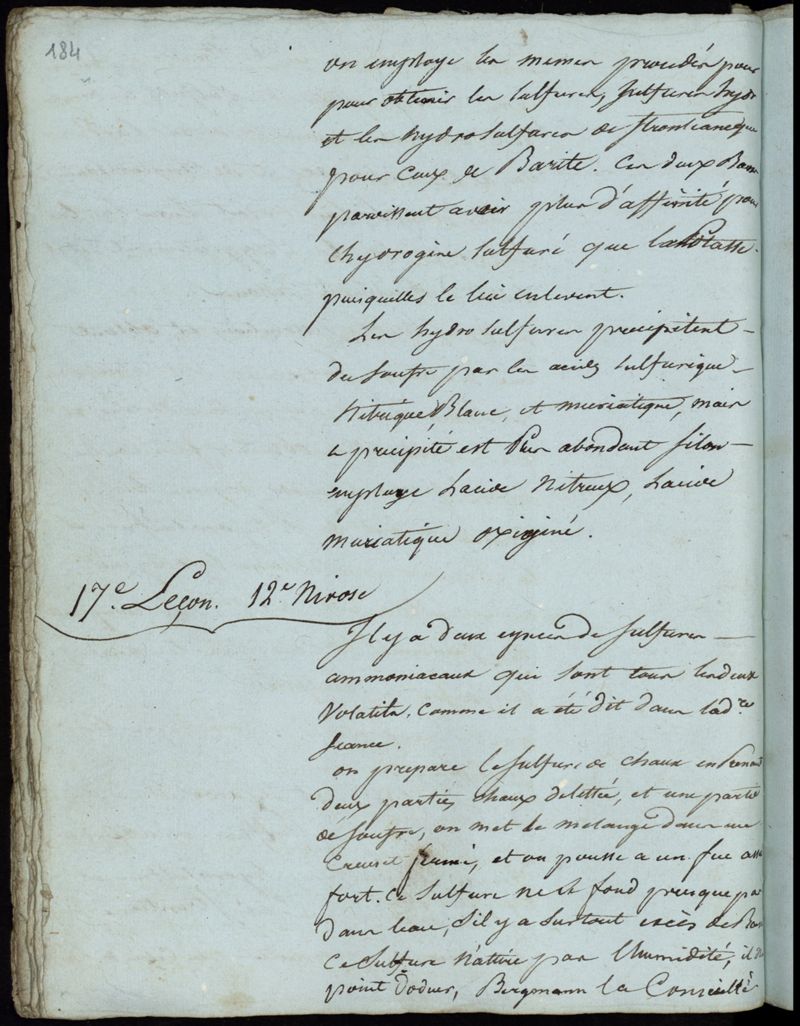 184
on employe les memes procedés pour
pour obtenir les sulfures, sulfures hydr
et les hydrosulfures de strontiane que
pour ceux de Barite. Ces deux Bases
paroissent avoir plus d'affinité pour
l'hydrogène sulfuré que la Potasse
puisquelles le lui enlevent.
Les hydrosulfures precipitent
du soufre par les acides sulfurique
Nitrique Blanc, et muriatique, mais
le precipité est plus abondant si lon
employe Lacide Nitreux, Lacide
muriatique oxigéné.
17.e Leçon. 12.e Nivose
Il y a deux especes de sulfures
ammoniacaux qui sont tous les deux
Volatils. Comme il a été dit dans la d.re
seance.
on prepare le sulfure de chaux en Prenant
deux parties chaux delitée, et une partie
de soufre, on met le melange dans un
Creuset fermé, et on pousse a un feu assez
fort. Ce sulfure ne se fond presque pas
dans leau, s'il y a surtout excès de Base
Ce sulfure n'attire pas l'humidité, il n'a
point Dodeur, Bergmann la Conseillé